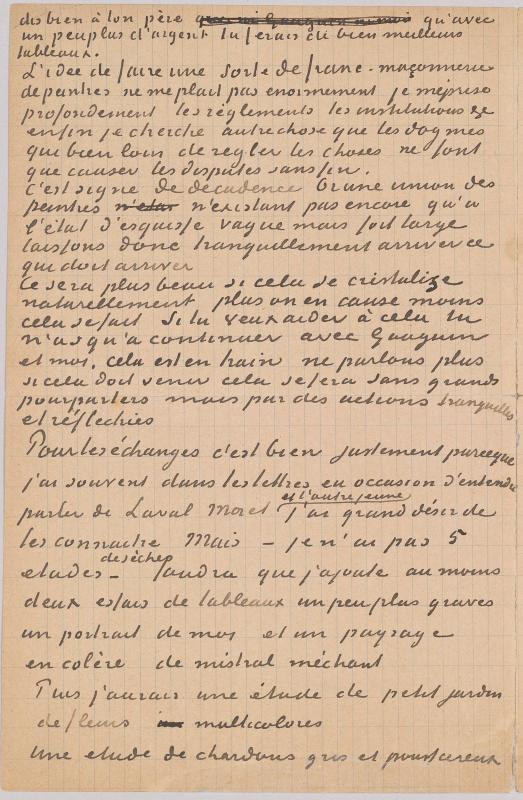 dis bien à ton père qu'avec
un peu plus d'argent tu ferais de bien meilleurs
tableaux.
L'idée de faire une sorte de franc-maçonnerie
de peintres ne me plait pas enormement je méprise
profondement les règlements les institutions etc
enfin je cherche autre chose que les dogmes
qui bien loin de regler les choses ne font
que causer les disputes sans fin.
C'est signe de décadence Or une union des
peintres n'existant pas encore qu'à
l'état d'esquisse vague mais fort large
laissons donc tranquillement arriver ce
qui doit arriver
Ce sera plus beau si cela se cristalise
naturellement plus on en cause moins
cela se fait Si tu veux aider à cela tu
n'as qu'à continuer avec Gauguin
et moi. cela est en train ne parlons plus
si cela doit venir cela se fera sans grands
pourparlers mais par des actions tranquilles
et réfléchies
Pour les échanges c'est bien justement parceque
j'ai souvent dans les lettres eu occasion d'entendre
parler de Laval Moret et l'autre jeune J'ai grand désir de
les connaitre Mais – je n'ai pas 5
etudes – de sèches faudra que j'ajoute au moins
deux essais de tableaux un peu plus graves
un portrait de moi et un paysage
en colère de mistral méchant
Puis j'aurais une étude de petit jardin
de fleurs multicolores
une etude de chardons gris et poussiereux